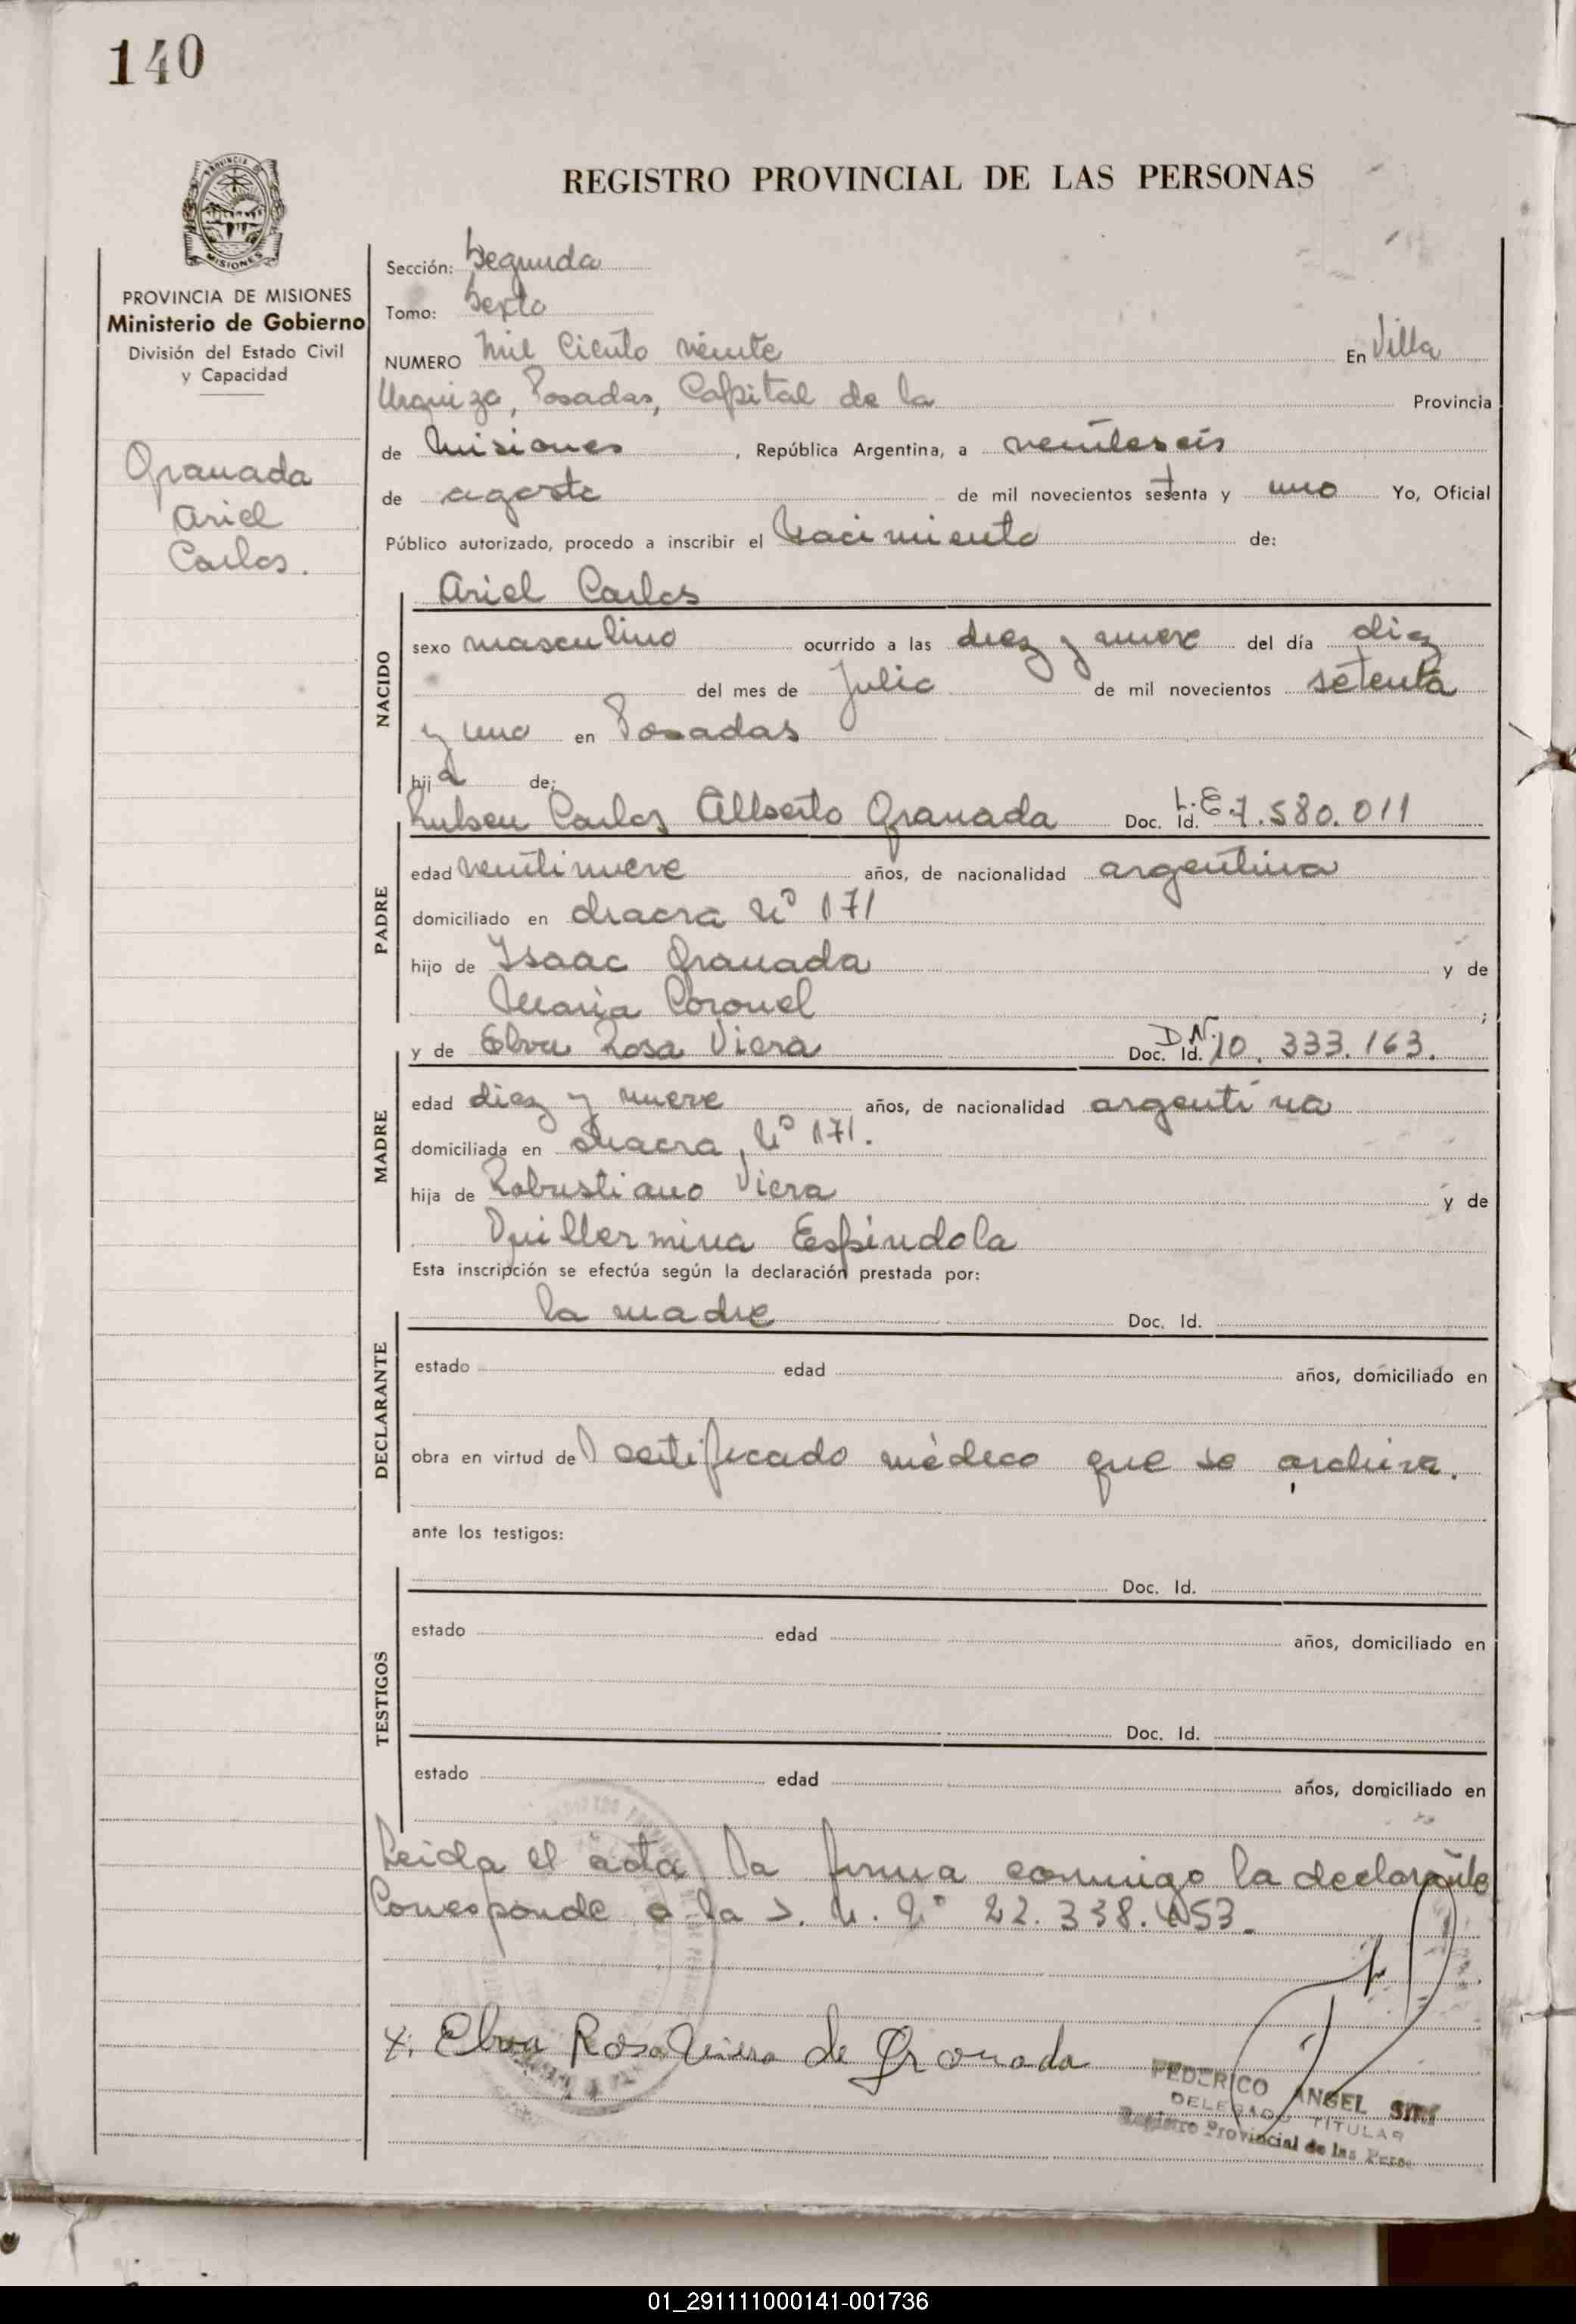 140
PROVINCIA
MISIONES
REGISTRO PROVINCIAL DE LAS PERSONAS
PROVINCIA DE MISIONES
Ministerio de Gobierno
División del Estado Civil
y Capacidad
Granada
Ariel
Carlos.
Sección: Segunda
Tomo: Sexto
NUMERO Mil Ciento veinte En Villa
Urquiza, Posadas, Capital de la Provincia
de Misiones, República Argentina, a veintiseis
de agosto de mil novecientos setenta y uno Yo, Oficial
Público autorizado, procedo a inscribir el Nacimiento de:
NACIDO
Ariel Carlos
sexo masculino ocurrido a las diez y nueve del día diez
del mes de Julio de mil novecientos setenta
y uno en Posadas
hijo de:
PADRE
Ruben Carlos Alberto Granada Doc. Id. L.E. 7.580.011
edad veintinueve años, de nacionalidad argentina
domiciliado en chacra Nº 171
hijo de Isaac Granada y de
Maria Coronel ;
MADRE
y de Elva Rosa Viera Doc. Id. D.N. 10.333.163.
edad diez y nueve años, de nacionalidad argentina
domiciliada en chacra, Nº 171.
hija de Robustiano Viera y de
Guillermina Espíndola
Esta inscripción se efectúa según la declaración prestada por:
DECLARANTE
la madre Doc. Id.
estado edad años, domiciliado en
obra en virtud del certificado médico que se archiva.
ante los testigos:
TESTIGOS
Doc. Id.
estado edad años, domiciliado en
Doc. Id.
estado edad años, domiciliado en
Leida el acta la firma conmigo la declarante
Corresponde a la Nº 22.338.
x: Elva Rosa Viera de Granada
FEDERICO ANGEL
DELEGADO TITULAR
Registro Provincial de las Pers
01_291111000141-001736